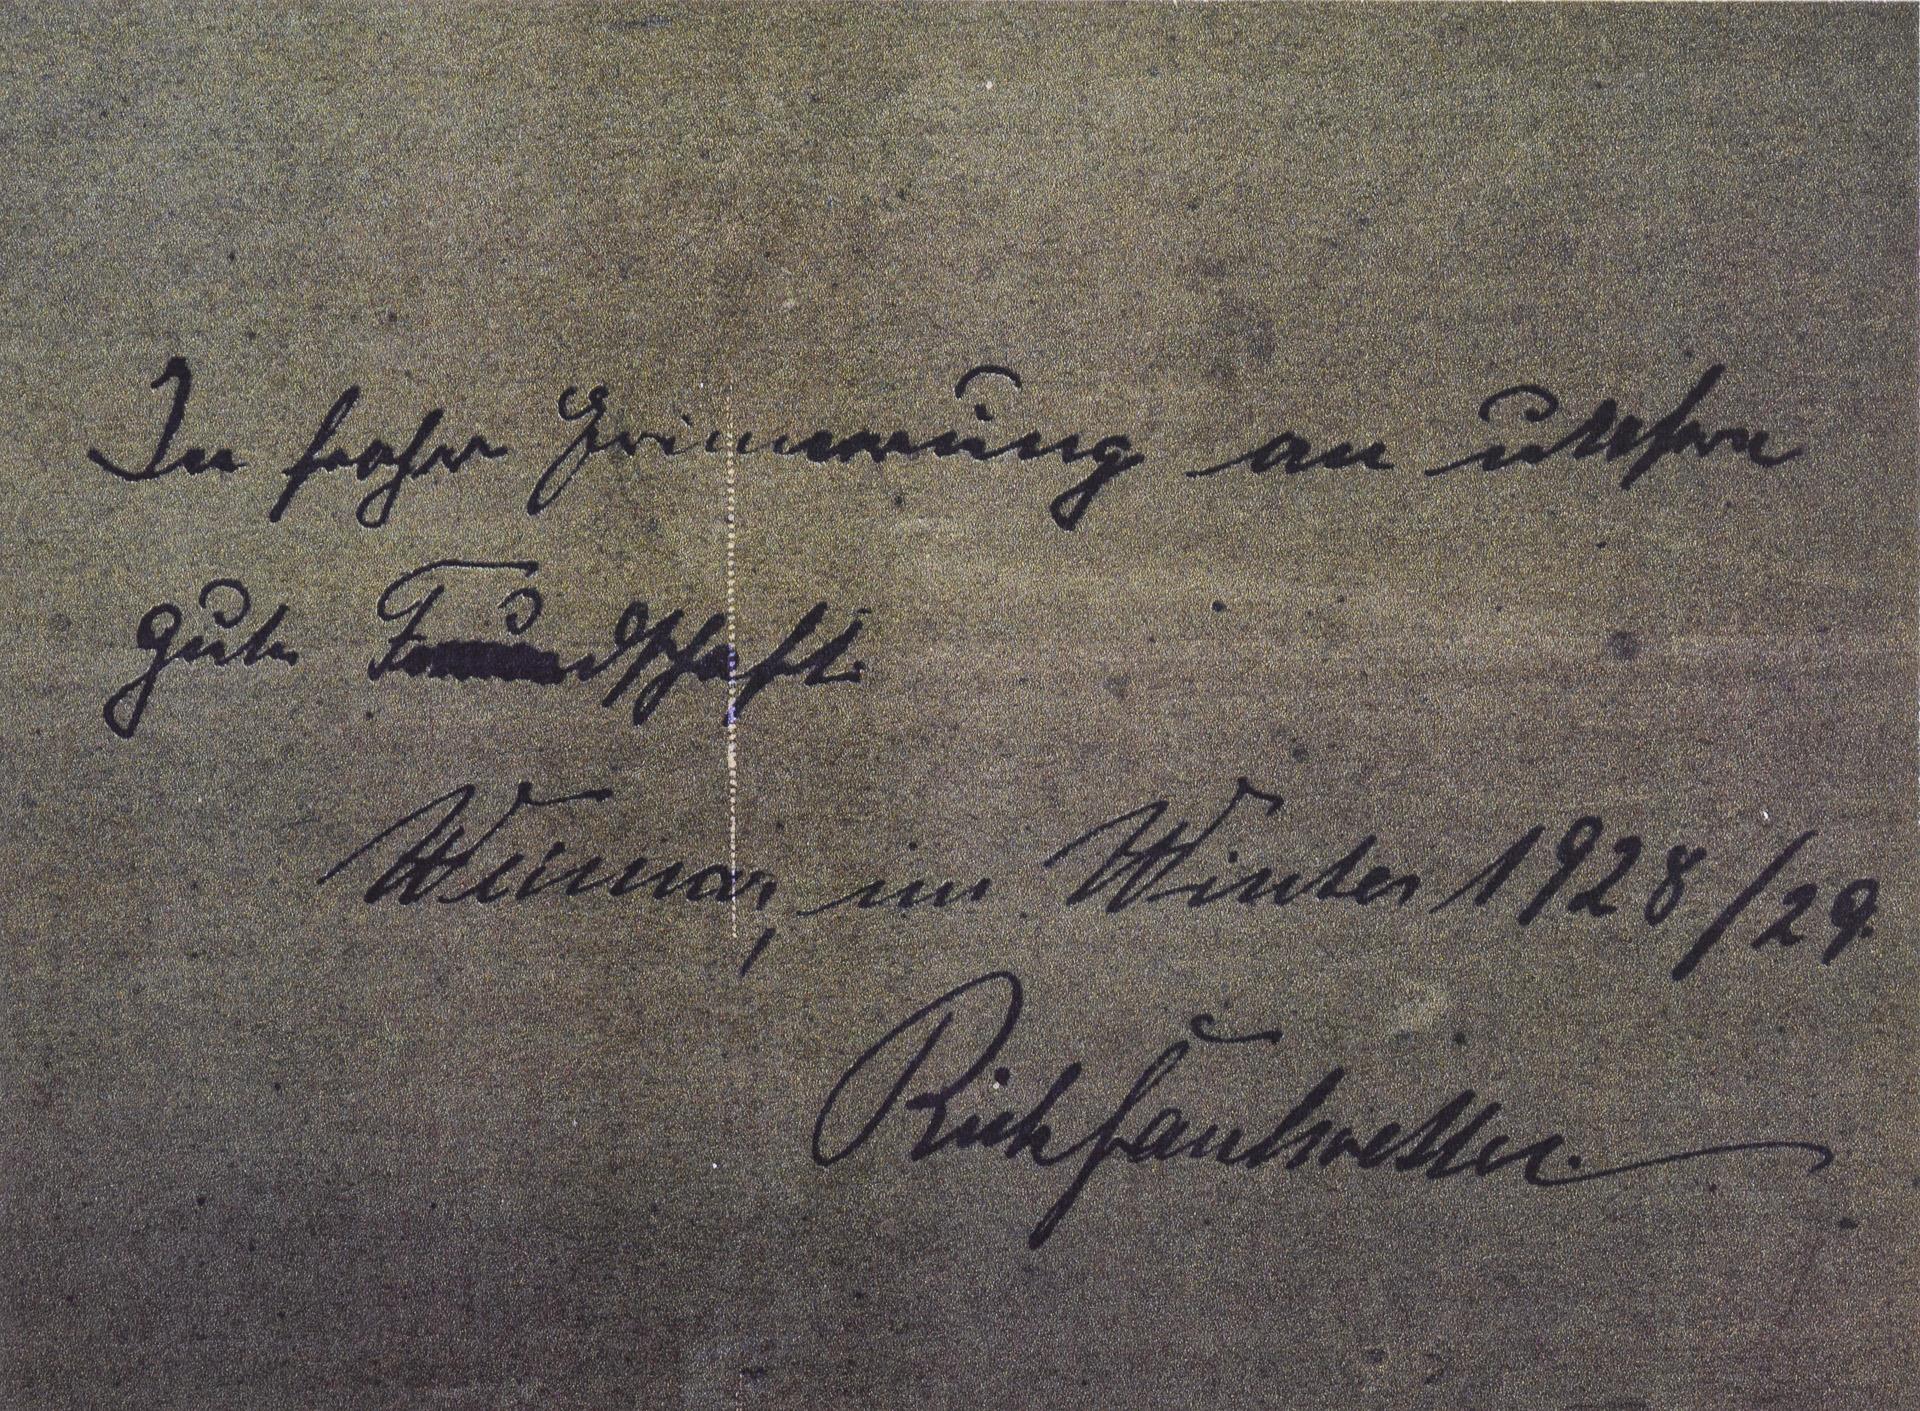 In froher Erinnerung an unsere
gute Freundschaft.
Weimar, im Winter 1928/29.